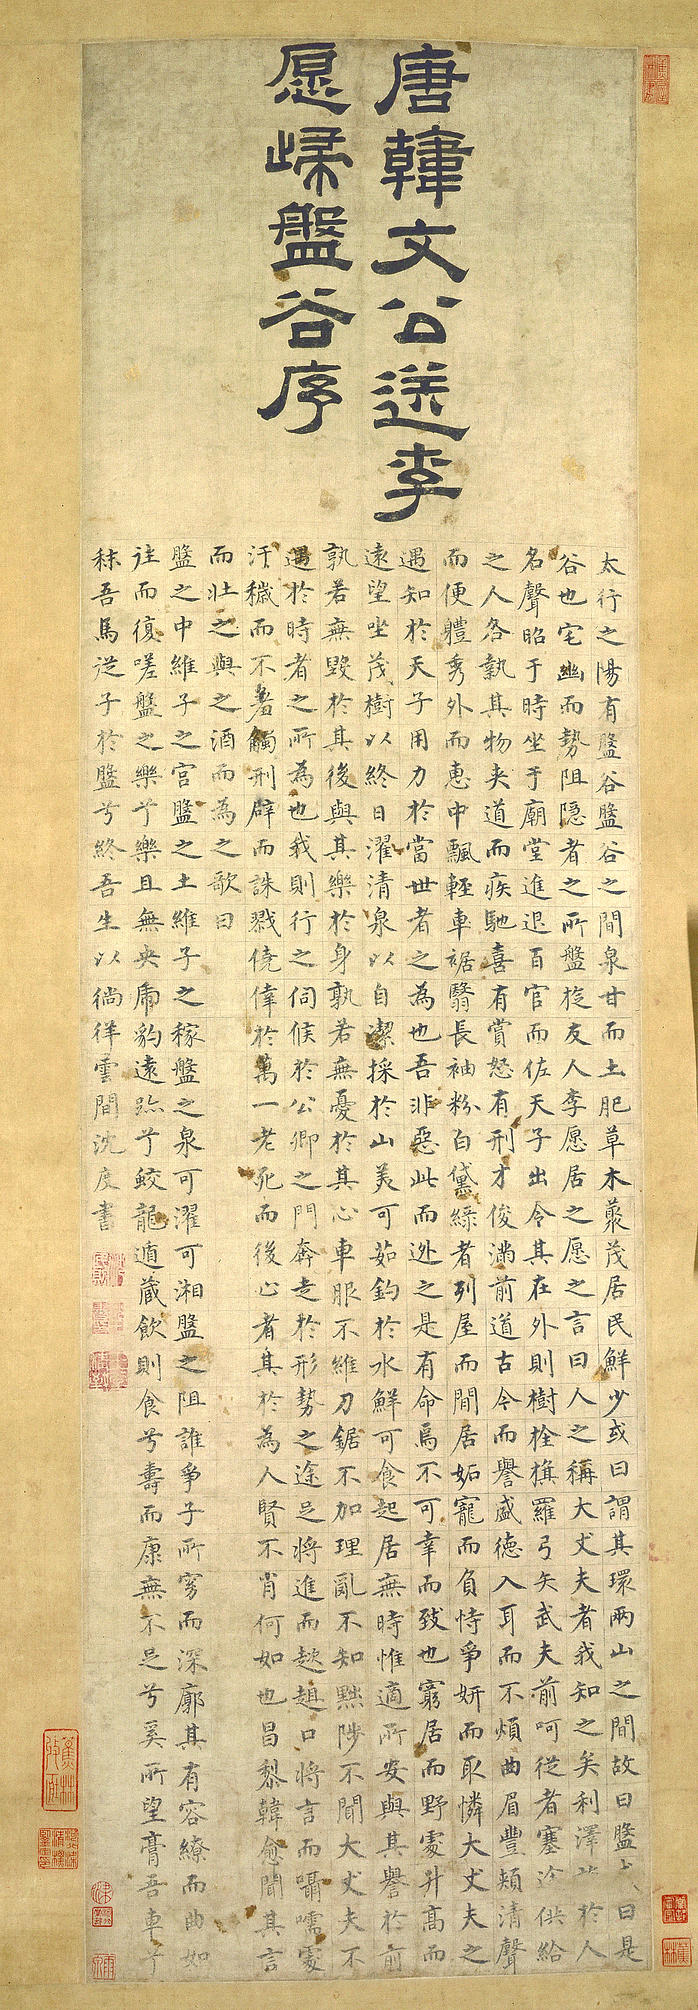 唐韓文公送李
愿歸盤谷序
太行之陽有盤谷盤谷之間泉甘而土肥草木藂茂居民鮮少或曰謂其環兩山之間故曰盤 曰是
谷也宅幽而勢阻隱者之所盤旋友人李愿居之愿之言曰人之稱大丈夫者我知之矣利澤 於人
名聲昭于時坐于廟堂進退百官而佐天子出令其在外則樹栓旗羅弓矢武夫前呵從者塞途供給
之人各執其物夾道而疾馳喜有賞怒有刑才俊滿前道古今而譽盛德入耳而不煩曲眉豐頰清聲
而便體秀外而惠中飄輕車裾翳長袖粉白黛綠者列屋而閒居妬寵而負恃爭妍而取憐大丈夫之
遇知於天子用力於當世者之為也吾非惡此而逃之是有命焉不可幸而致也窮居而野處升高而
遠望坐茂樹以終日濯清泉以自潔採於山美可茹釣於水鮮可食起居無時惟適所安與其譽於前
孰若無毀於其後與其樂於身孰若無憂於其心車服不維刀鋸不加理亂不知黜陟不聞大丈夫不
遇於時者之所為也我則行之伺候於公卿之門奔走於形勢之途足將進而趑趄口將言而囁嚅處
汙穢而不羞觸刑辟而誅戮僥倖於萬一老死而後心者其於為人賢不肖何如也昌黎韓愈聞其言
而壯之與之酒而為之歌曰
盤之中維子之宮盤之土維子之稼盤之泉可濯可湘盤之阻誰爭子所窈而深廓其有容繚而曲如
往而復嗟盤之樂兮樂且無央虎豹遠跡兮蛟龍遁藏飲則食兮壽而康無不足兮奚所望膏吾車兮
秣吾馬從子於盤兮終吾生以徜徉雲間沈度書